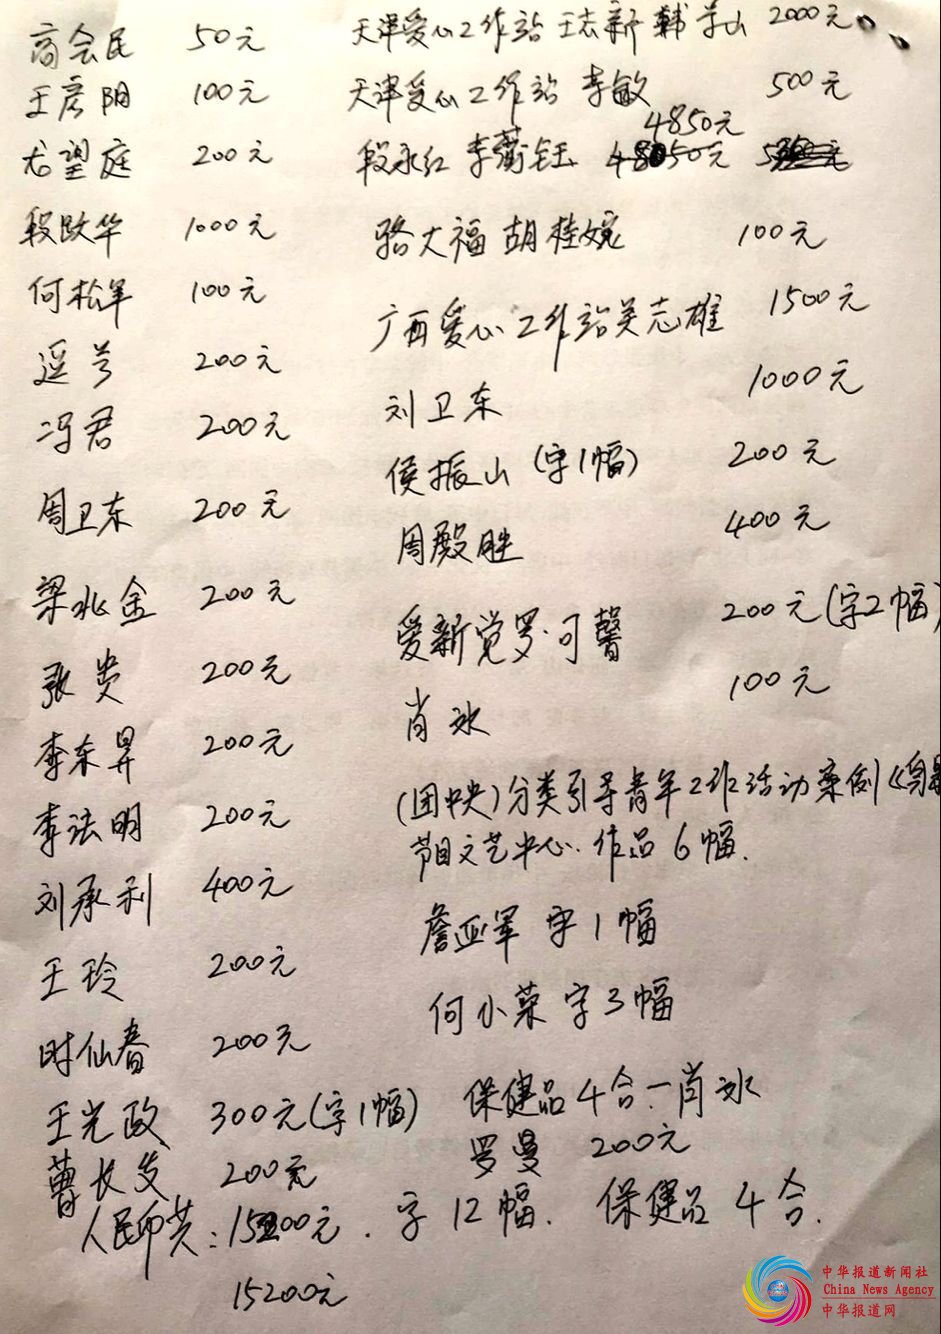 商会民 50元
王彦阳 100元
尤望庭 200元
段跃华 1000元
何松年 100元
遥兮 200元
冯君 200元
周卫东 200元
梁兆金 200元
张贵 200元
李东昇 200元
李法明 200元
刘承利 400元
王玲 200元
时仙春 200元
王光政 300元(字1幅)
曹长发 200元
天津爱心工作站 王志新 韩 山 2000元
天津爱心工作站 李敏 500元
4850元
段永红 李 钰
骆大福 胡桂婉 100元
广西爱心工作站关志雄 1500元
刘卫东 1000元
侯振山(字1幅) 200元
周殿胜 400元
爱新觉罗·可馨 200元(字2幅)
肖冰 100元
(团中央)分类引导青年工作活动案例《
节目文艺中心 作品6幅.
詹亚军 字1幅
何小菜 字3幅
保健品4合一肖冰
罗曼 200元
人民币共:15200元. 字12幅. 保健品4合.
15200元
中华报道新闻社
China News Agency
中华报道网